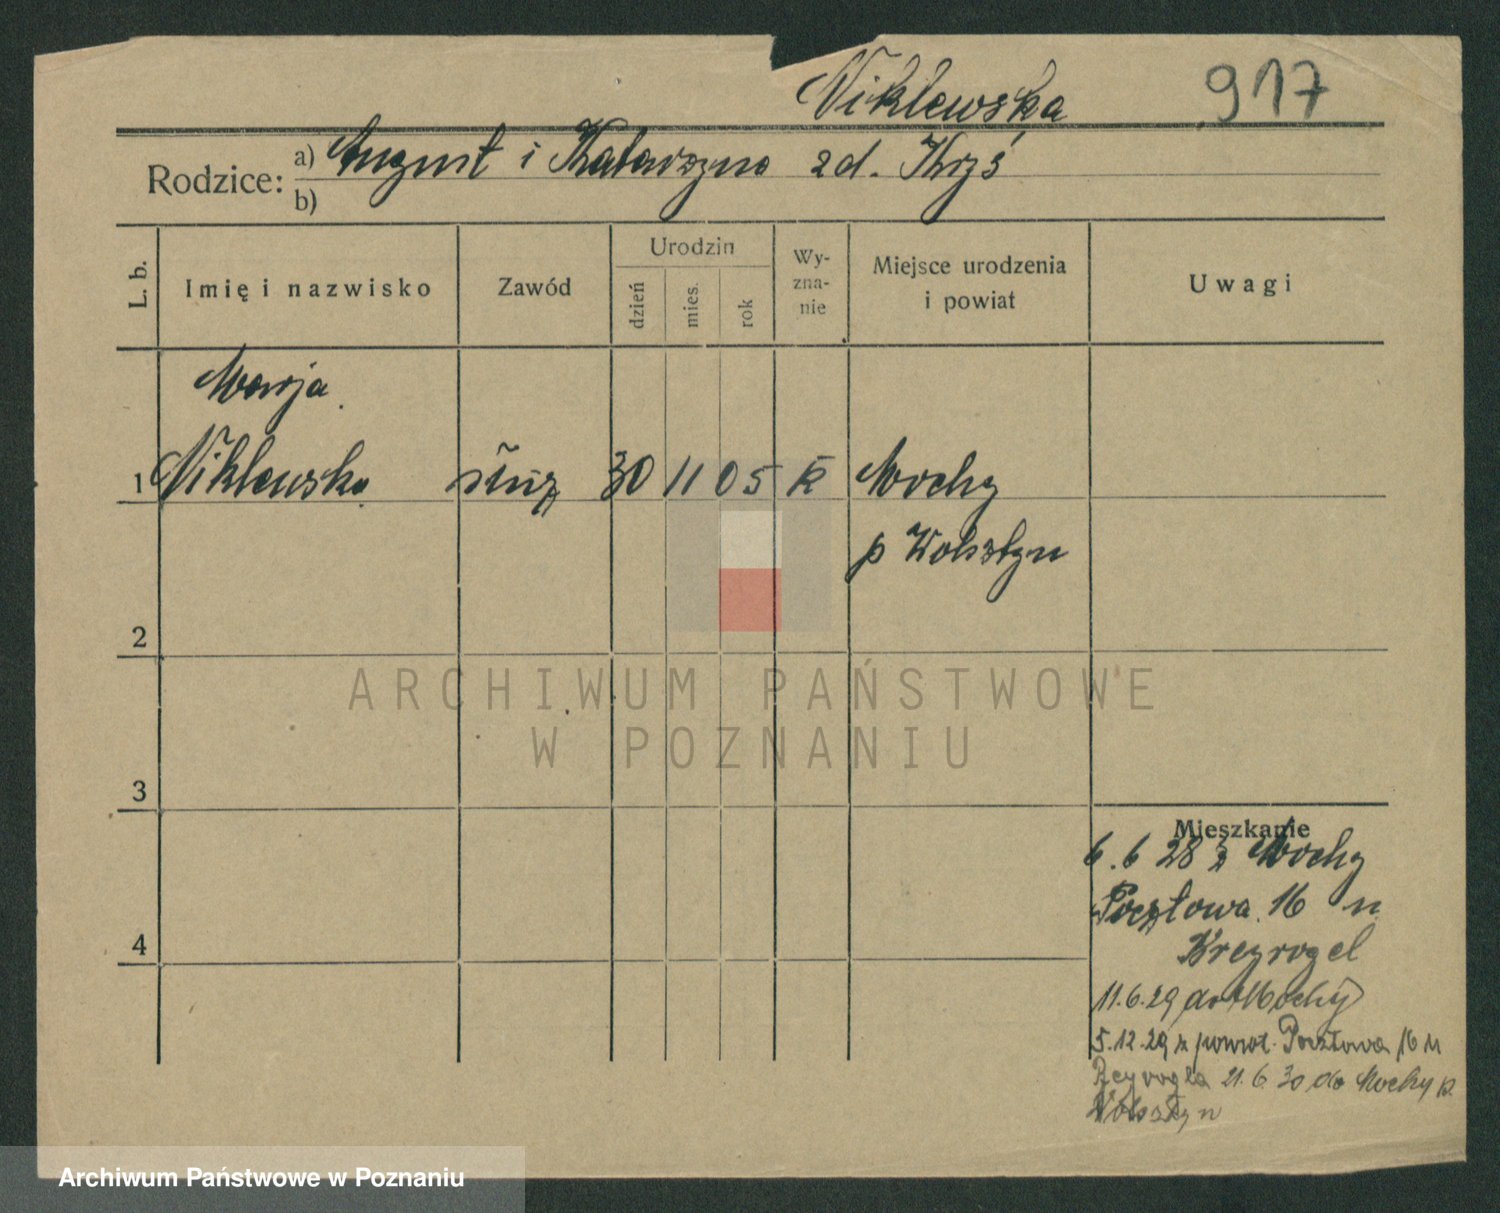 Niklewska 917
Rodzice: a) August i Katarzyna zd. Kryś
b)
L. b. Imię i nazwisko Zawód Urodzin dzień mies. rok Wy-zna-nie Miejsce urodzenia i powiat Uwagi
Marja
1 Niklewska służ 30 11 05 k Mochy
p Wolsztyn
2
ARCHIWUM PAŃSTWOWE
W POZNANIU
3
Mieszkanie
6.6 28 z Mochy
4 Pocztowa 16 u
11.6.29 do Mochy
5.12.29 z powrot. Pocztowa 16 u
21.6.30 do Mochy p.
Wolsztyn
Archiwum Państwowe w Poznaniu